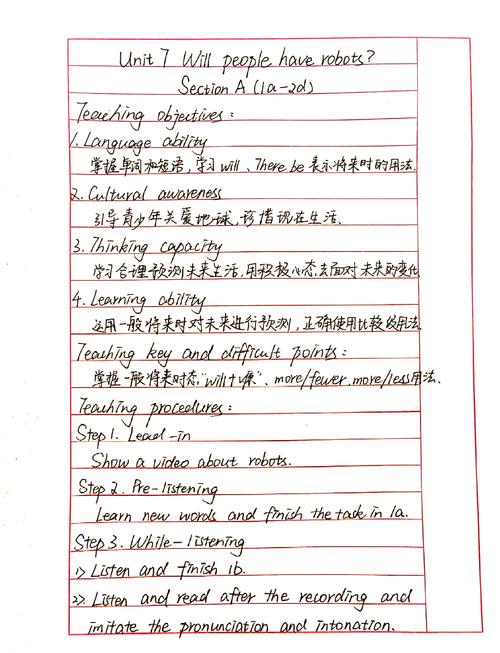 Unit 7 Will people have robots?
Section A (1a-2d)
Teaching objectives:
1. Language ability
掌握单词和短语,学习will、There be 表示将来时的用法.
2. Cultural awareness
引导青少年关爱地球,珍惜现在生活.
3. Thinking capacity
学习合理预测未来生活,用积极心态去面对未来的变化
4. Learning ability
运用一般将来时对未来进行预测,正确使用比较级用法
Teaching key and difficult points:
掌握一般将来时态"will+v原"、more/fewer, more/less用法.
Teaching procedures:
Step 1. Lead-in
Show a video about robots.
Step 2. Pre-listening
Learn new words and finish the task in 1a.
Step 3. While-listening
1> Listen and finish 1b.
2>. Listen and read after the recording and
imitate the pronunciation and intonation.